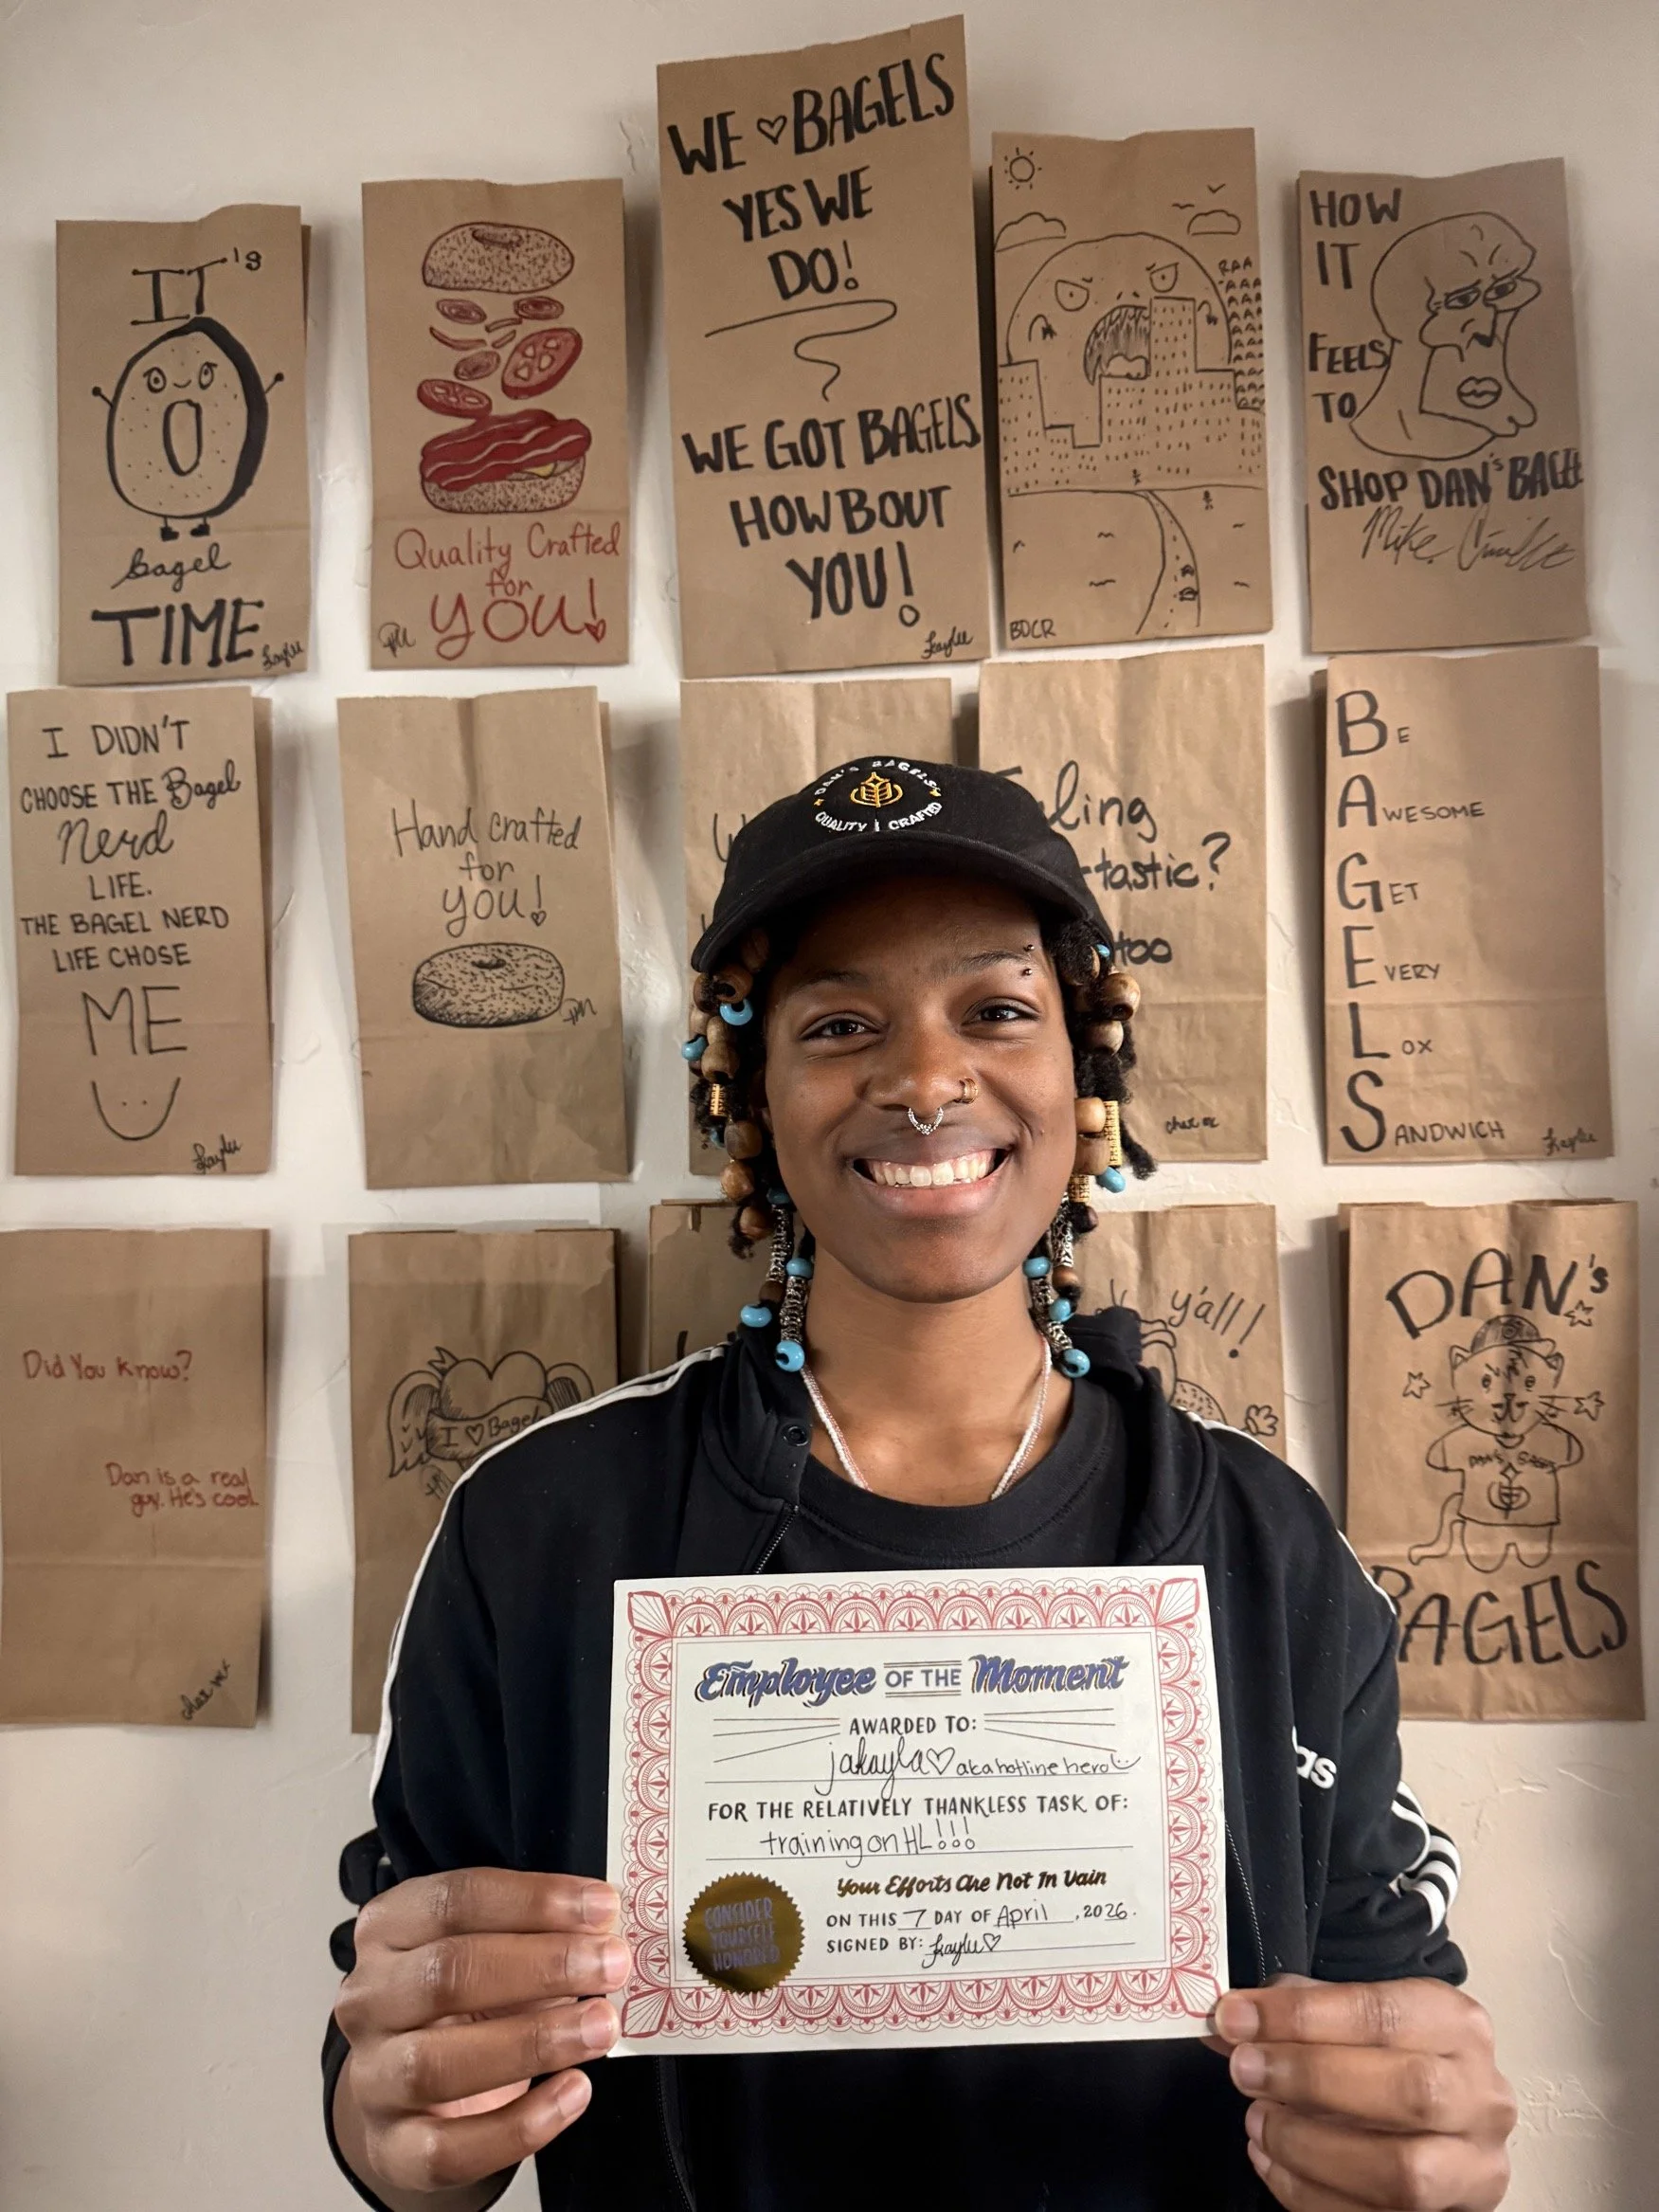 IT's
bagel
TIME
Kaylee
Quality Crafted
for
you!
WE ♡ BAGELS
YES WE
DO!
WE GOT BAGELS
HOW BOUT
YOU!
Kaylee
RAA
AAA
BDCR
HOW
IT
FEELS
TO
SHOP DAN'S BAGE
Mike
I DIDN'T
CHOOSE THE Bagel
Nerd
LIFE.
THE BAGEL NERD
LIFE CHOSE
ME
Kaylee
Hand crafted
for
you!
ling
-tastic?
too
BE
AWESOME
GET
EVERY
LOX
SANDWICH
Kaylee
Did You know?
Dan is a real
guy. He's cool.
I ♡ Bagel
y'all!
DAN's
DAN'S
BAGELS
DAN'S BAGELS
QUALITY CRAFTED
as
Employee OF THE Moment
AWARDED TO:
jakayla♡ aka hotline hero
FOR THE RELATIVELY THANKLESS TASK OF:
training on HL!!!
Your Efforts Are Not In Vain
ON THIS 7 DAY OF April, 2026.
SIGNED BY: Kaylee♡
CONSIDER
YOURSELF
HONORED